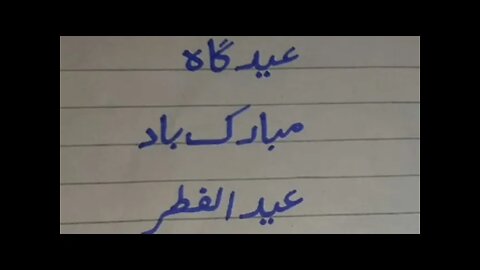 عید گاہ
مبارک باد
عید الفطر